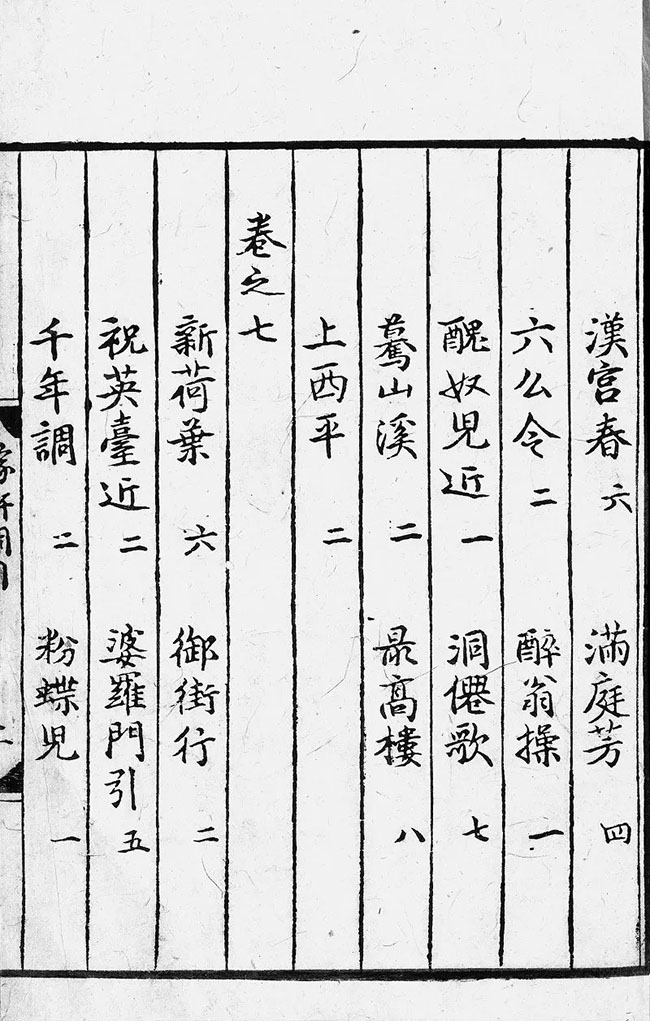 漢宮春 六 滿庭芳 四
六么令 二 醉翁操 一
醜奴兒近 一 洞僊歌 七
驀山溪 二 最髙樓 八
上西平 二
卷之七
新荷葉 六 御街行 二
祝英臺近 二 婆羅門引 五
千年調 二 粉蝶兒 一